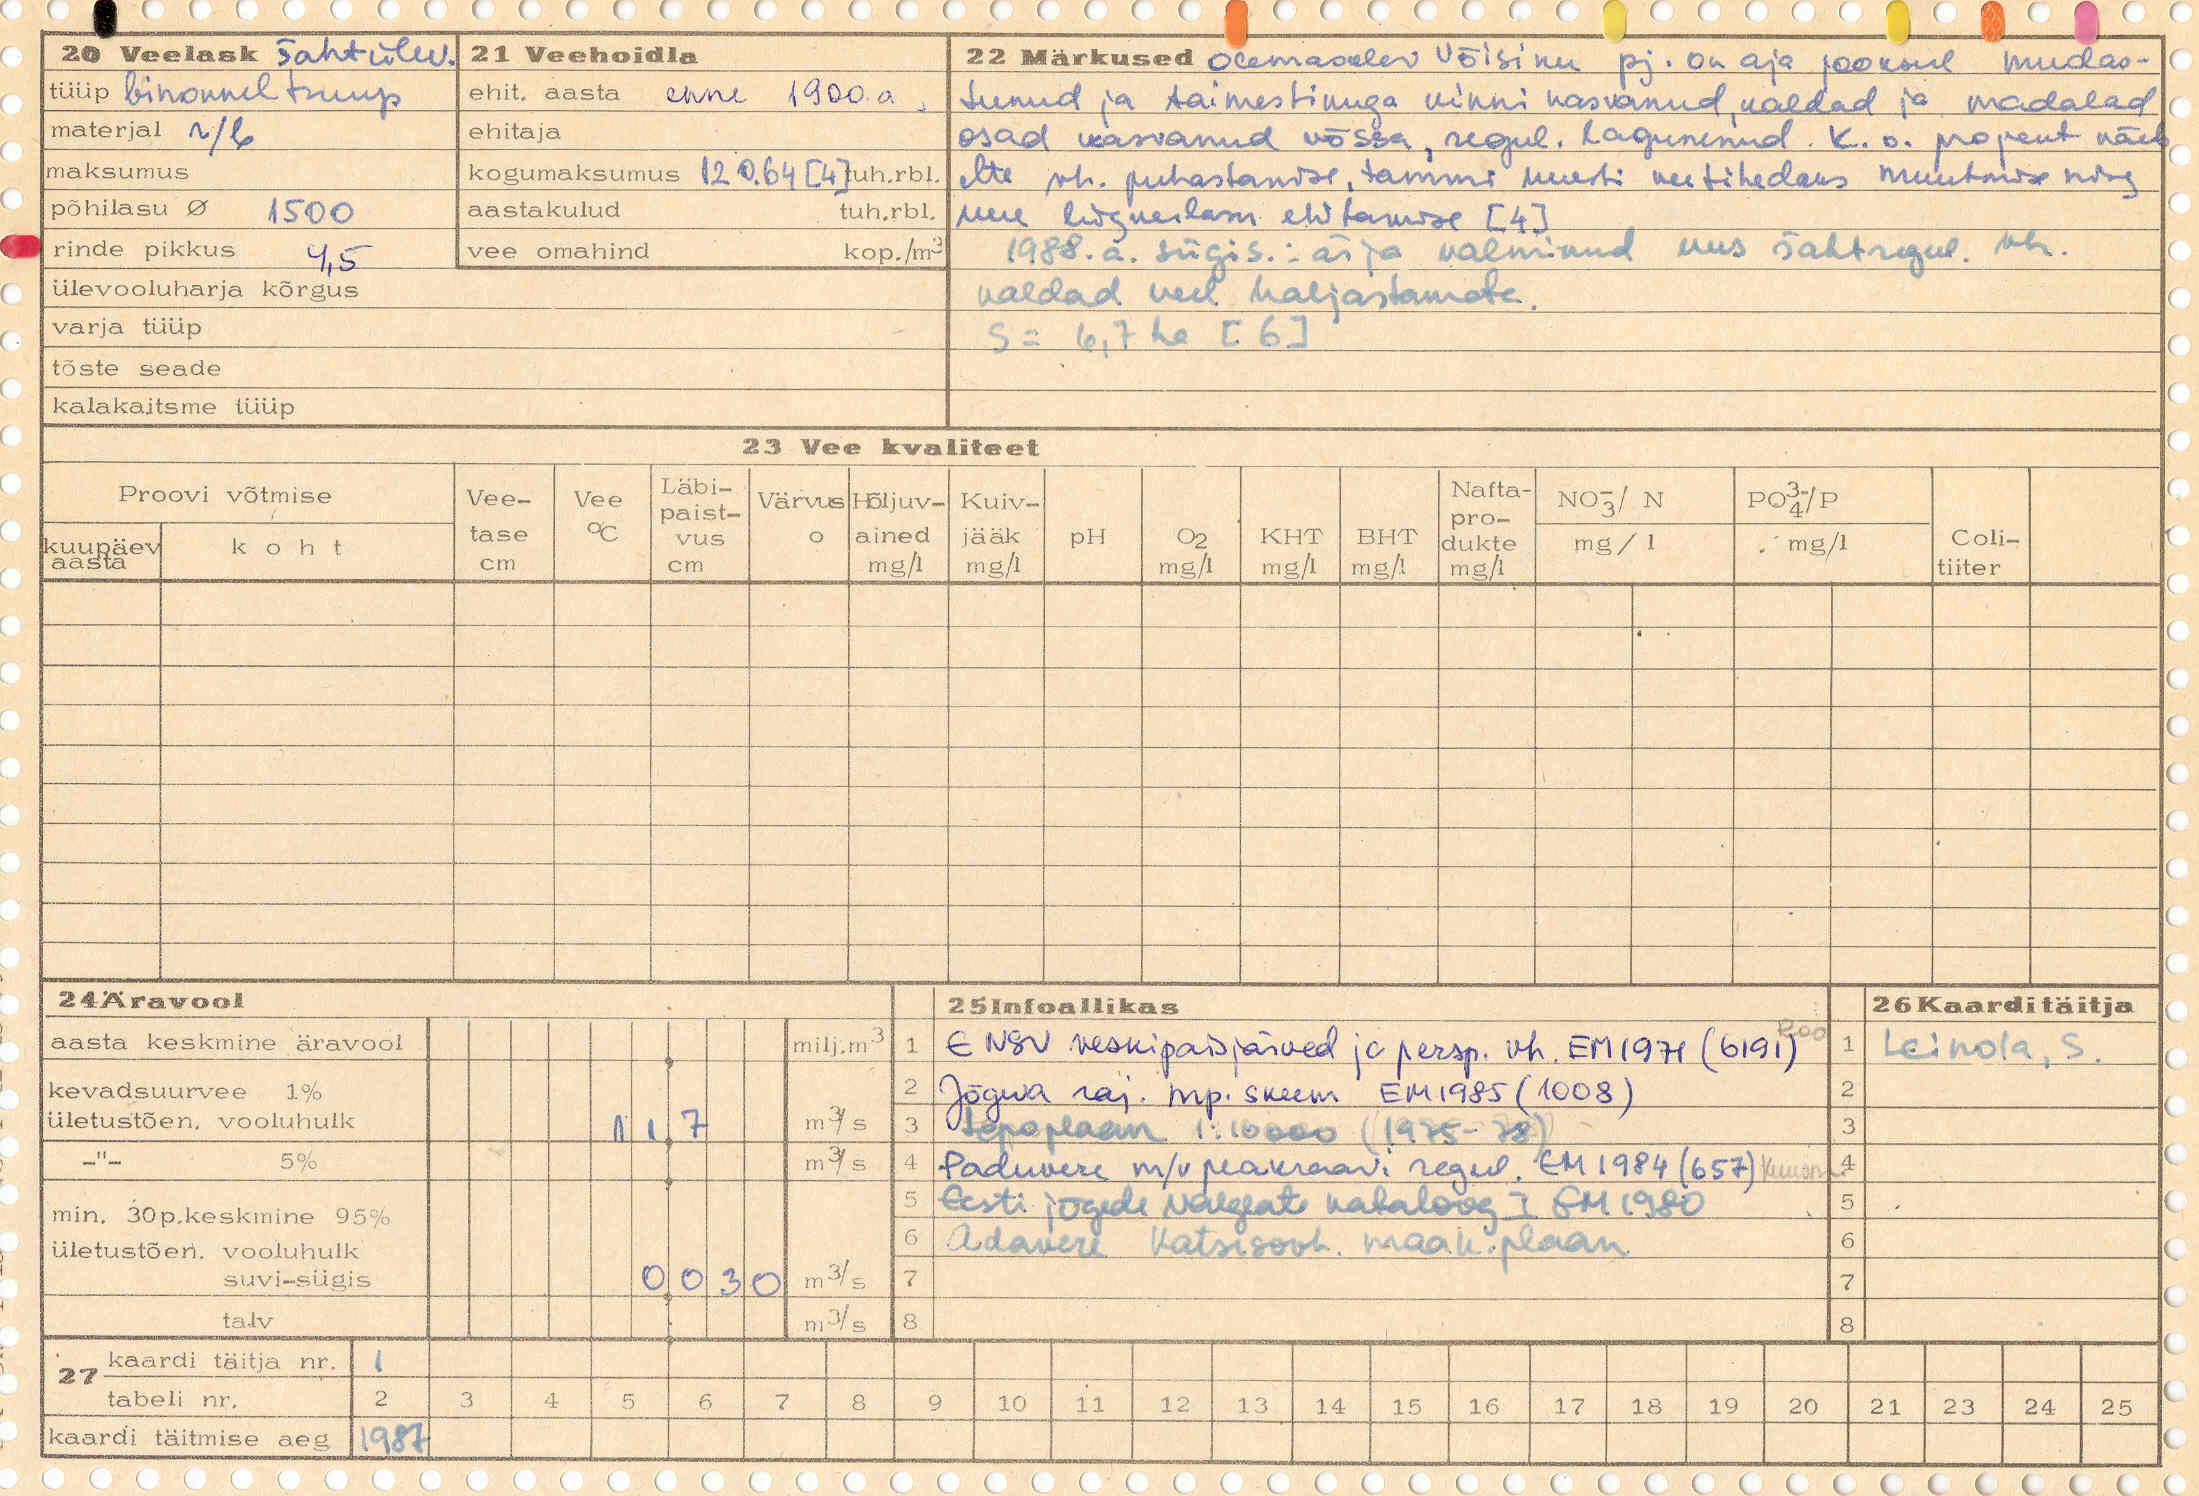 20 Veelask šahtülev.
tüüp
materjal r/b
maksumus
põhilasu Ø 1500
rinde pikkus 4,5
ülevooluharja kõrgus
varja tüüp
tõste seade
kalakaitsme tüüp
21 Veehoidla
ehit. aasta enne 1900.a.
ehitaja
kogumaksumus 120.64 [4] tuh.rbl.
aastakulud tuh.rbl.
vee omahind kop./m3
22 Märkused olemasolev Võisiku pj. on aja jooksul mudas-
tunud ja taimestikuga kinni kasvanud, kaldad ja madalad
osad kasvanud võssa, regul. lagunenud. K.o. projekt näeb
ette vh. puhastamise, tammi uuesti veetihedaks muutmise ning
uue liigveelasu ehitamise [4]
1988.a. sügis.: äsja valminud uus šahtregul. vh.
kaldad veel haljastamata.
S = 6,7 ha [6]
23 Vee kvaliteet
Proovi võtmise
kuupäev aasta
koht
Vee-
tase
cm
Vee
°C
Läbi-
paist-
vus
cm
Värvus
o
Hõljuv-
ained
mg/l
Kuiv-
jääk
mg/l
pH
O2
mg/l
KHT
mg/l
BHT
mg/l
Nafta-
pro-
dukte
mg/l
NO3-/ N
mg/l
PO4 3-/P
mg/l
Coli-
tiiter
24 Äravool
aasta keskmine äravool milj.m3
kevadsuurvee 1%
ületustõen. vooluhulk 11 7 m3/s
-"- 5% m3/s
min. 30p.keskmine 95%
ületustõen. vooluhulk
suvi-sügis 0 0 3 0 m3/s
talv m3/s
25 Infoallikas
1 ENSV veskipaisjärved ja persp. vh. EM 1971 (6191) Roo
2 Jõgeva raj. mp. skeem EM 1985 (1008)
3 topoplaan 1:10000 (1975-78)
4 Paduvere m/v peakraavi regul. EM 1984 (657)
5 Eesti jõgede valgalade kataloog I EM 1980
6 Adavere Katsesovh. maak.plaan
7
8
26 Kaarditäitja
1 Leinola, S.
2
3
4
5
6
7
8
27 kaardi täitja nr. 1
tabeli nr. 2 3 4 5 6 7 8 9 10 11 12 13 14 15 16 17 18 19 20 21 23 24 25
kaardi täitmise aeg 1987